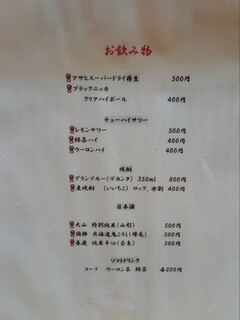 お飲み物
アサヒスーパードライ樽生 500円
ブラックニッカ
クリアハイボール 400円
チューハイサワー
レモンサワー 500円
緑茶ハイ 400円
ウーロンハイ 400円
焼酎
グランブルー(デカンタ) 350ml 800円
麦焼酎 (いいちこ) ロック,水割 400円
日本酒
犬山 特別純米(山形) 500円
国稀 北海道鬼ころし(増毛) 500円
春鹿 純米辛口(奈良) 500円
ソフトドリンク
コーラ ウーロン茶 緑茶 各200円